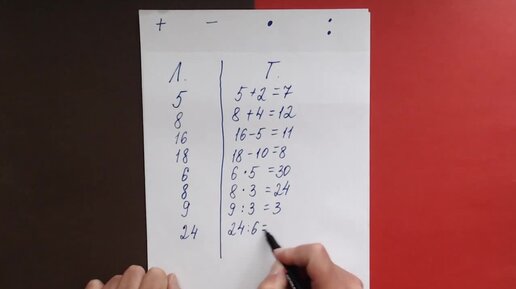 + − • :
Л. Т.
5 5+2=7
8 8+4=12
16 16-5=11
18 18-10=8
6 6·5=30
8 8·3=24
9 9:3=3
24 24:6=